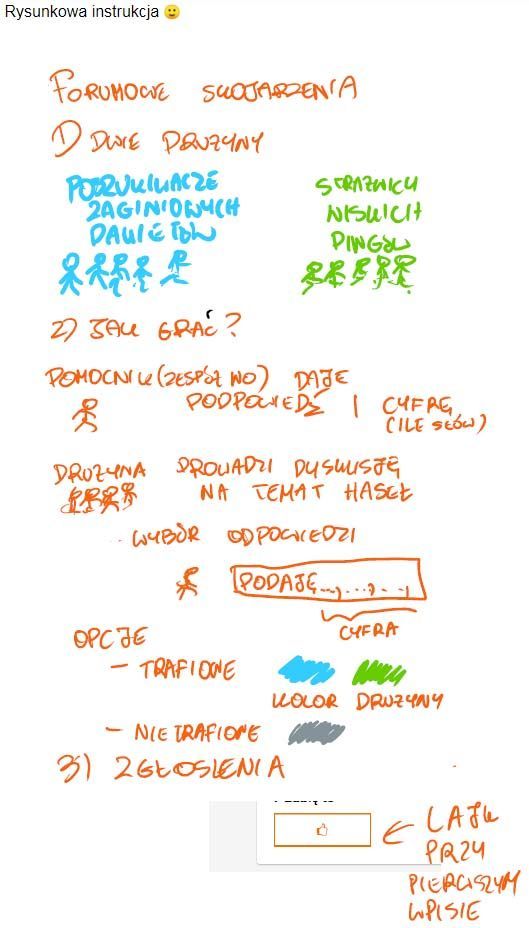 Rysunkowa instrukcja 🙂
FORUMOWE SKOJARZENIA
1) DWIE DRUŻYNY
POSZUKIWACZE ZAGINIONYCH DAKIETÓW
STRAŻNICY NISKICH PINGÓW
2) JAK GRAĆ?
POMOCNIK (ZESPÓŁ WO) DAJE
PODPOWIEDŹ I CYFRĘ
(ILE SŁÓW)
DRUŻYNA PROWADZI DYSKUSJĘ
NA TEMAT HASEŁ
WYBÓR ODPOWIEDZI
PODAJĘ ...,...,...
CYFRA
OPCJE
- TRAFIONE
KOLOR DRUŻYNY
- NIETRAFIONE
3) ZGŁOSZENIA
LAJK
PRZY
PIERWSZYM
WPISIE